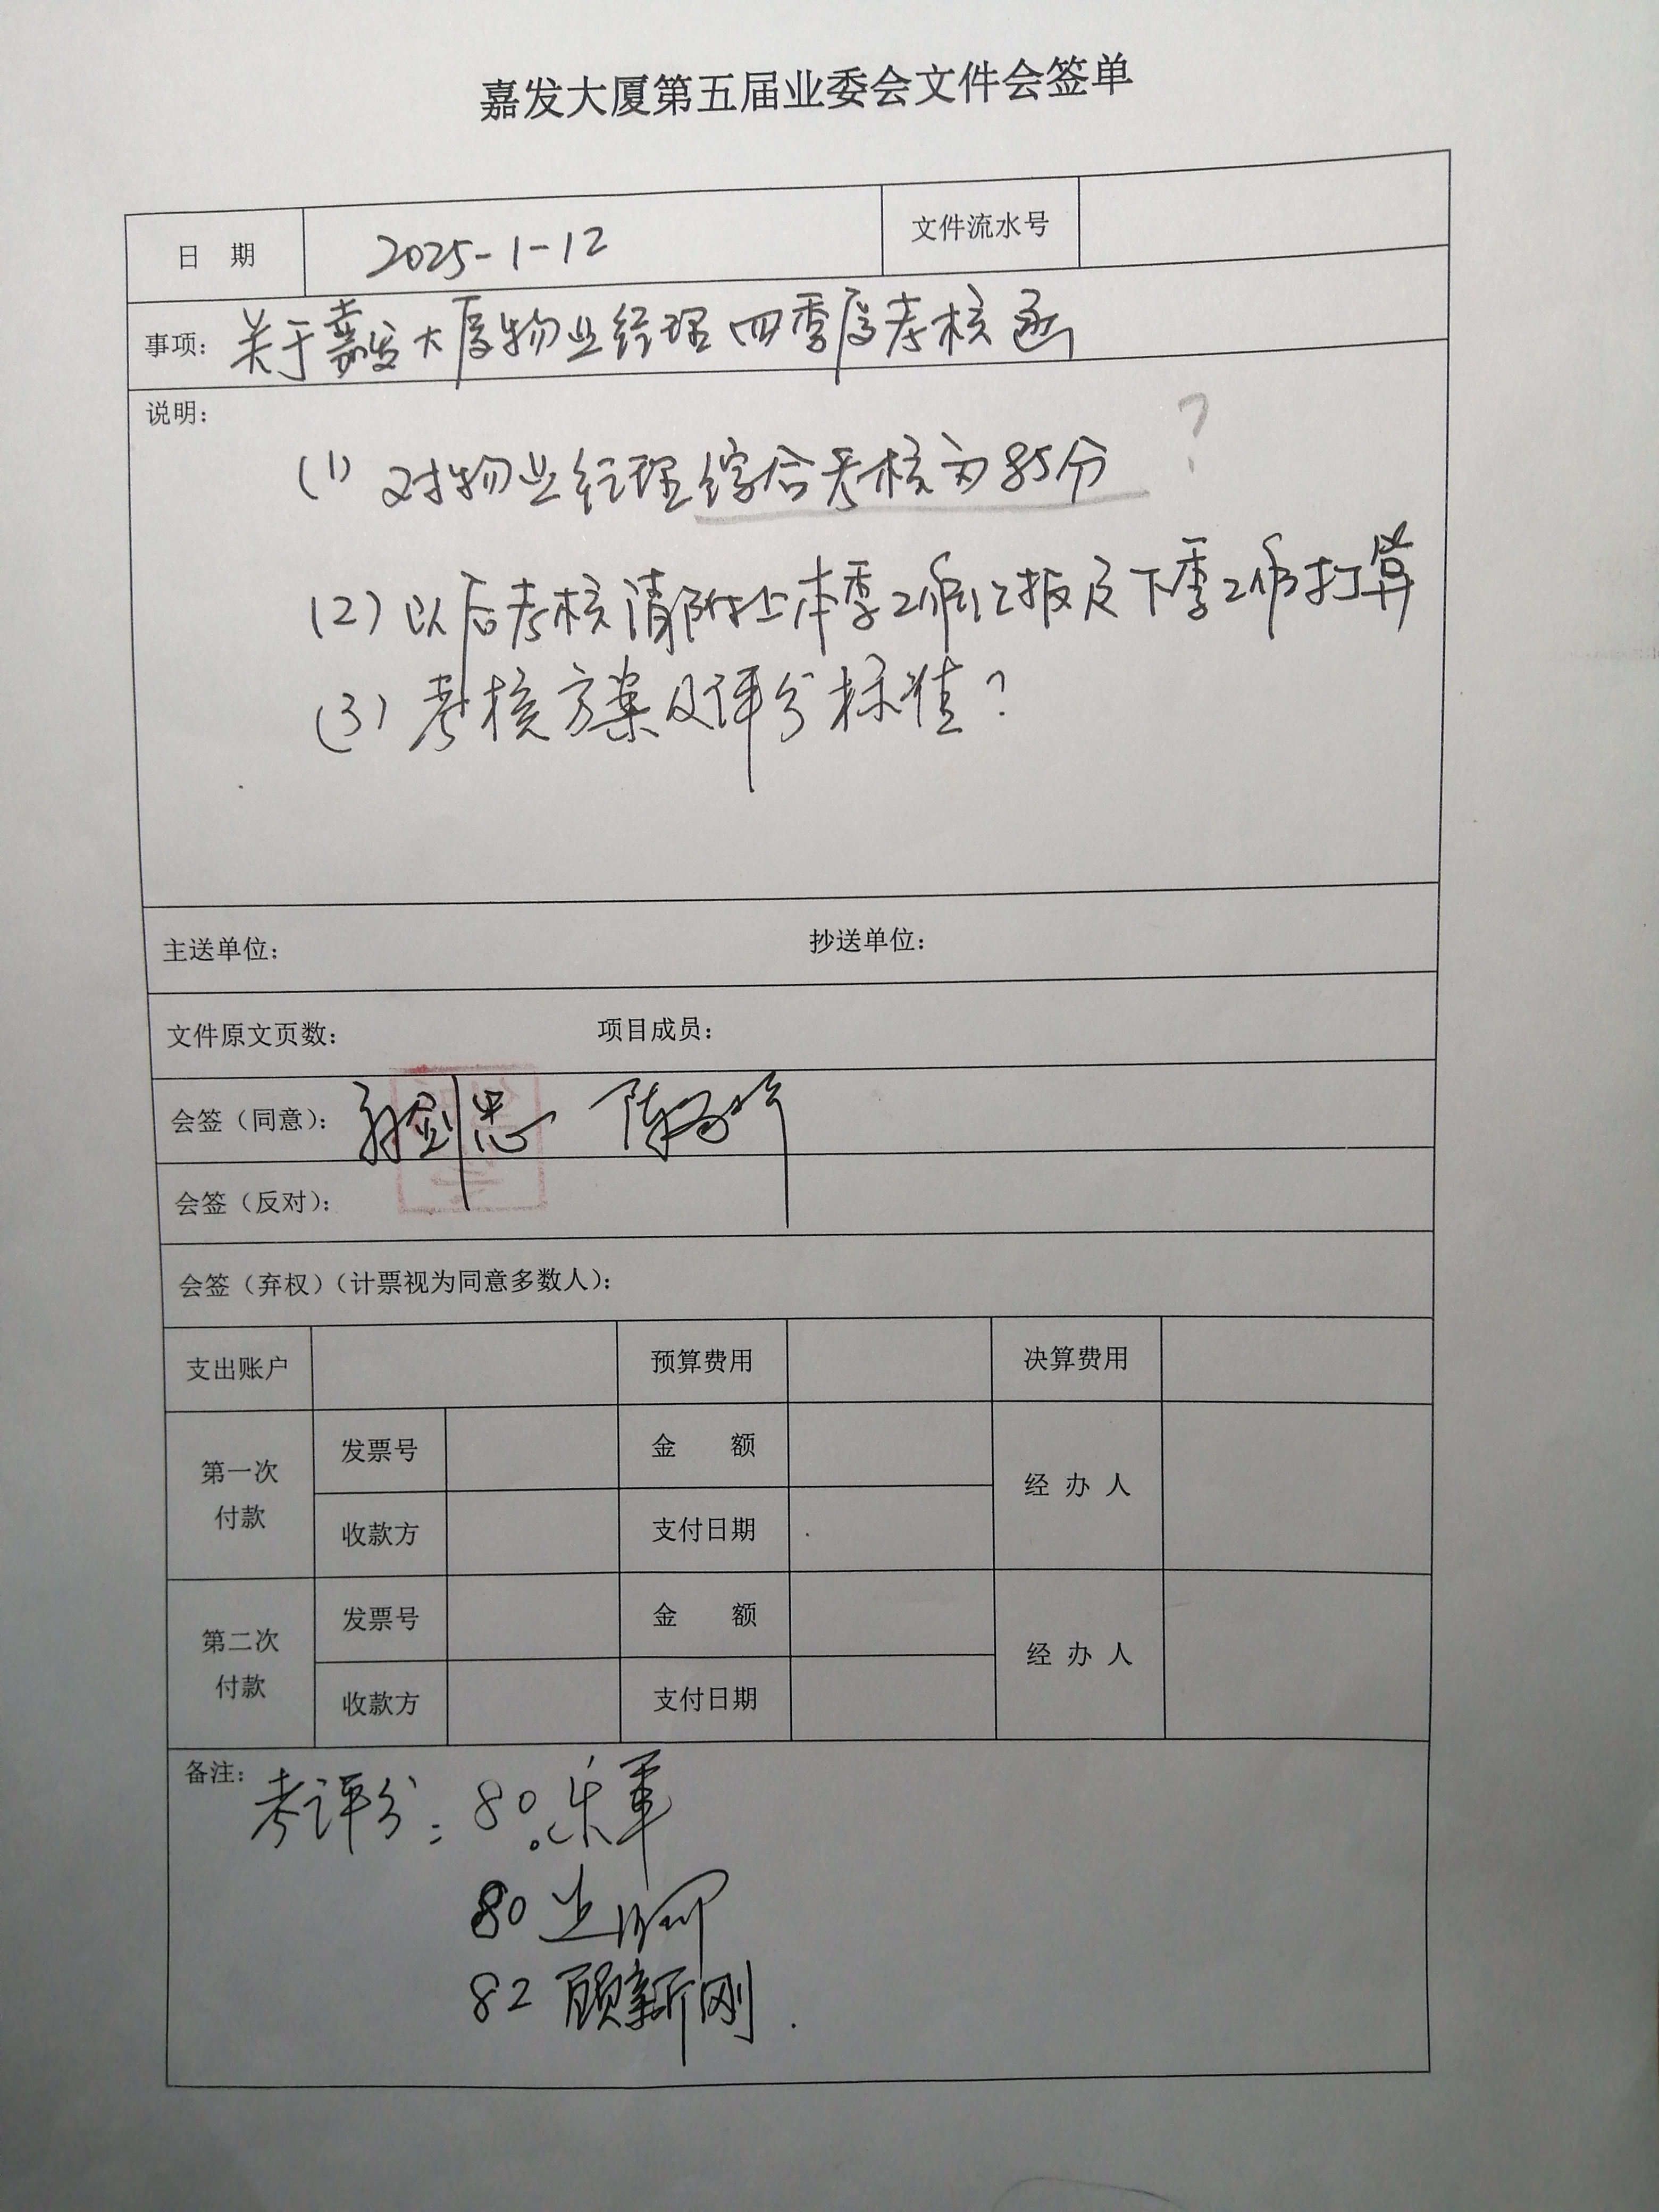 嘉发大厦第五届业委会文件会签单
日 期 2025-1-12 文件流水号
事项：关于嘉发大厦物业经理四季度考核函
说明：
(1) 对物业经理综合考核为85分 ?
(2) 以后考核请附上本季工作汇报及下季工作打算
(3) 考核方案及评分标准？
主送单位： 抄送单位：
文件原文页数： 项目成员：
会签（同意）：
会签（反对）：
会签（弃权）（计票视为同意多数人）：
支出账户 预算费用 决算费用
第一次付款 发票号 金 额 经 办 人
收款方 支付日期
第二次付款 发票号 金 额 经 办 人
收款方 支付日期
备注：考评分：80.乐军
80
82 顾新刚.